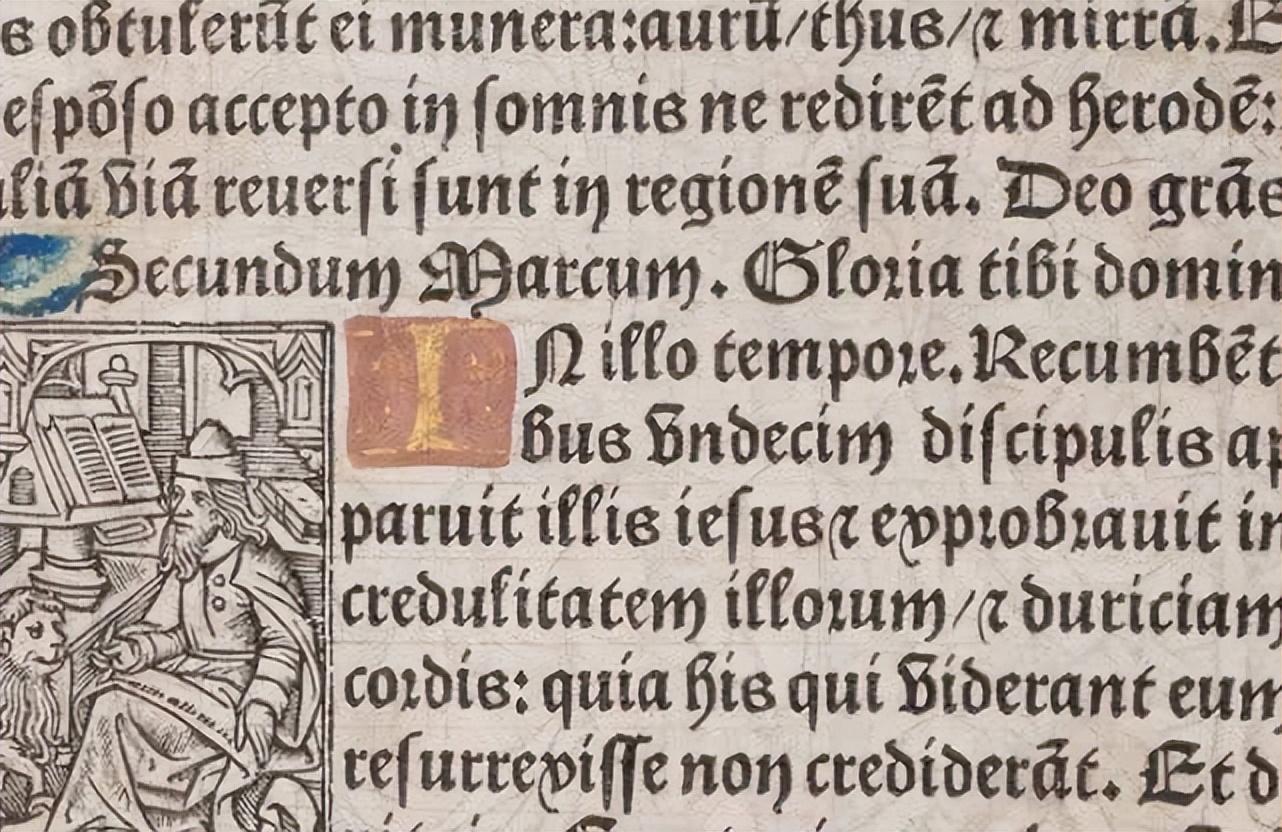 s obtulerūt ei munera:aurū/thus/⁊ mirrā. E
espōso accepto in somnis ne redirēt ad herodē:
aliā viā reuersi sunt in regionē suā. Deo grās
Secundum Marcum. Gloria tibi domin
IN illo tempore. Recumbēt
bus vndecim discipulis ap
paruit illis iesus⁊ exprobrauit in
credulitatem illorum/⁊ duriciam
cordis: quia his qui viderant eum
resurrexisse non crediderāt. Et d